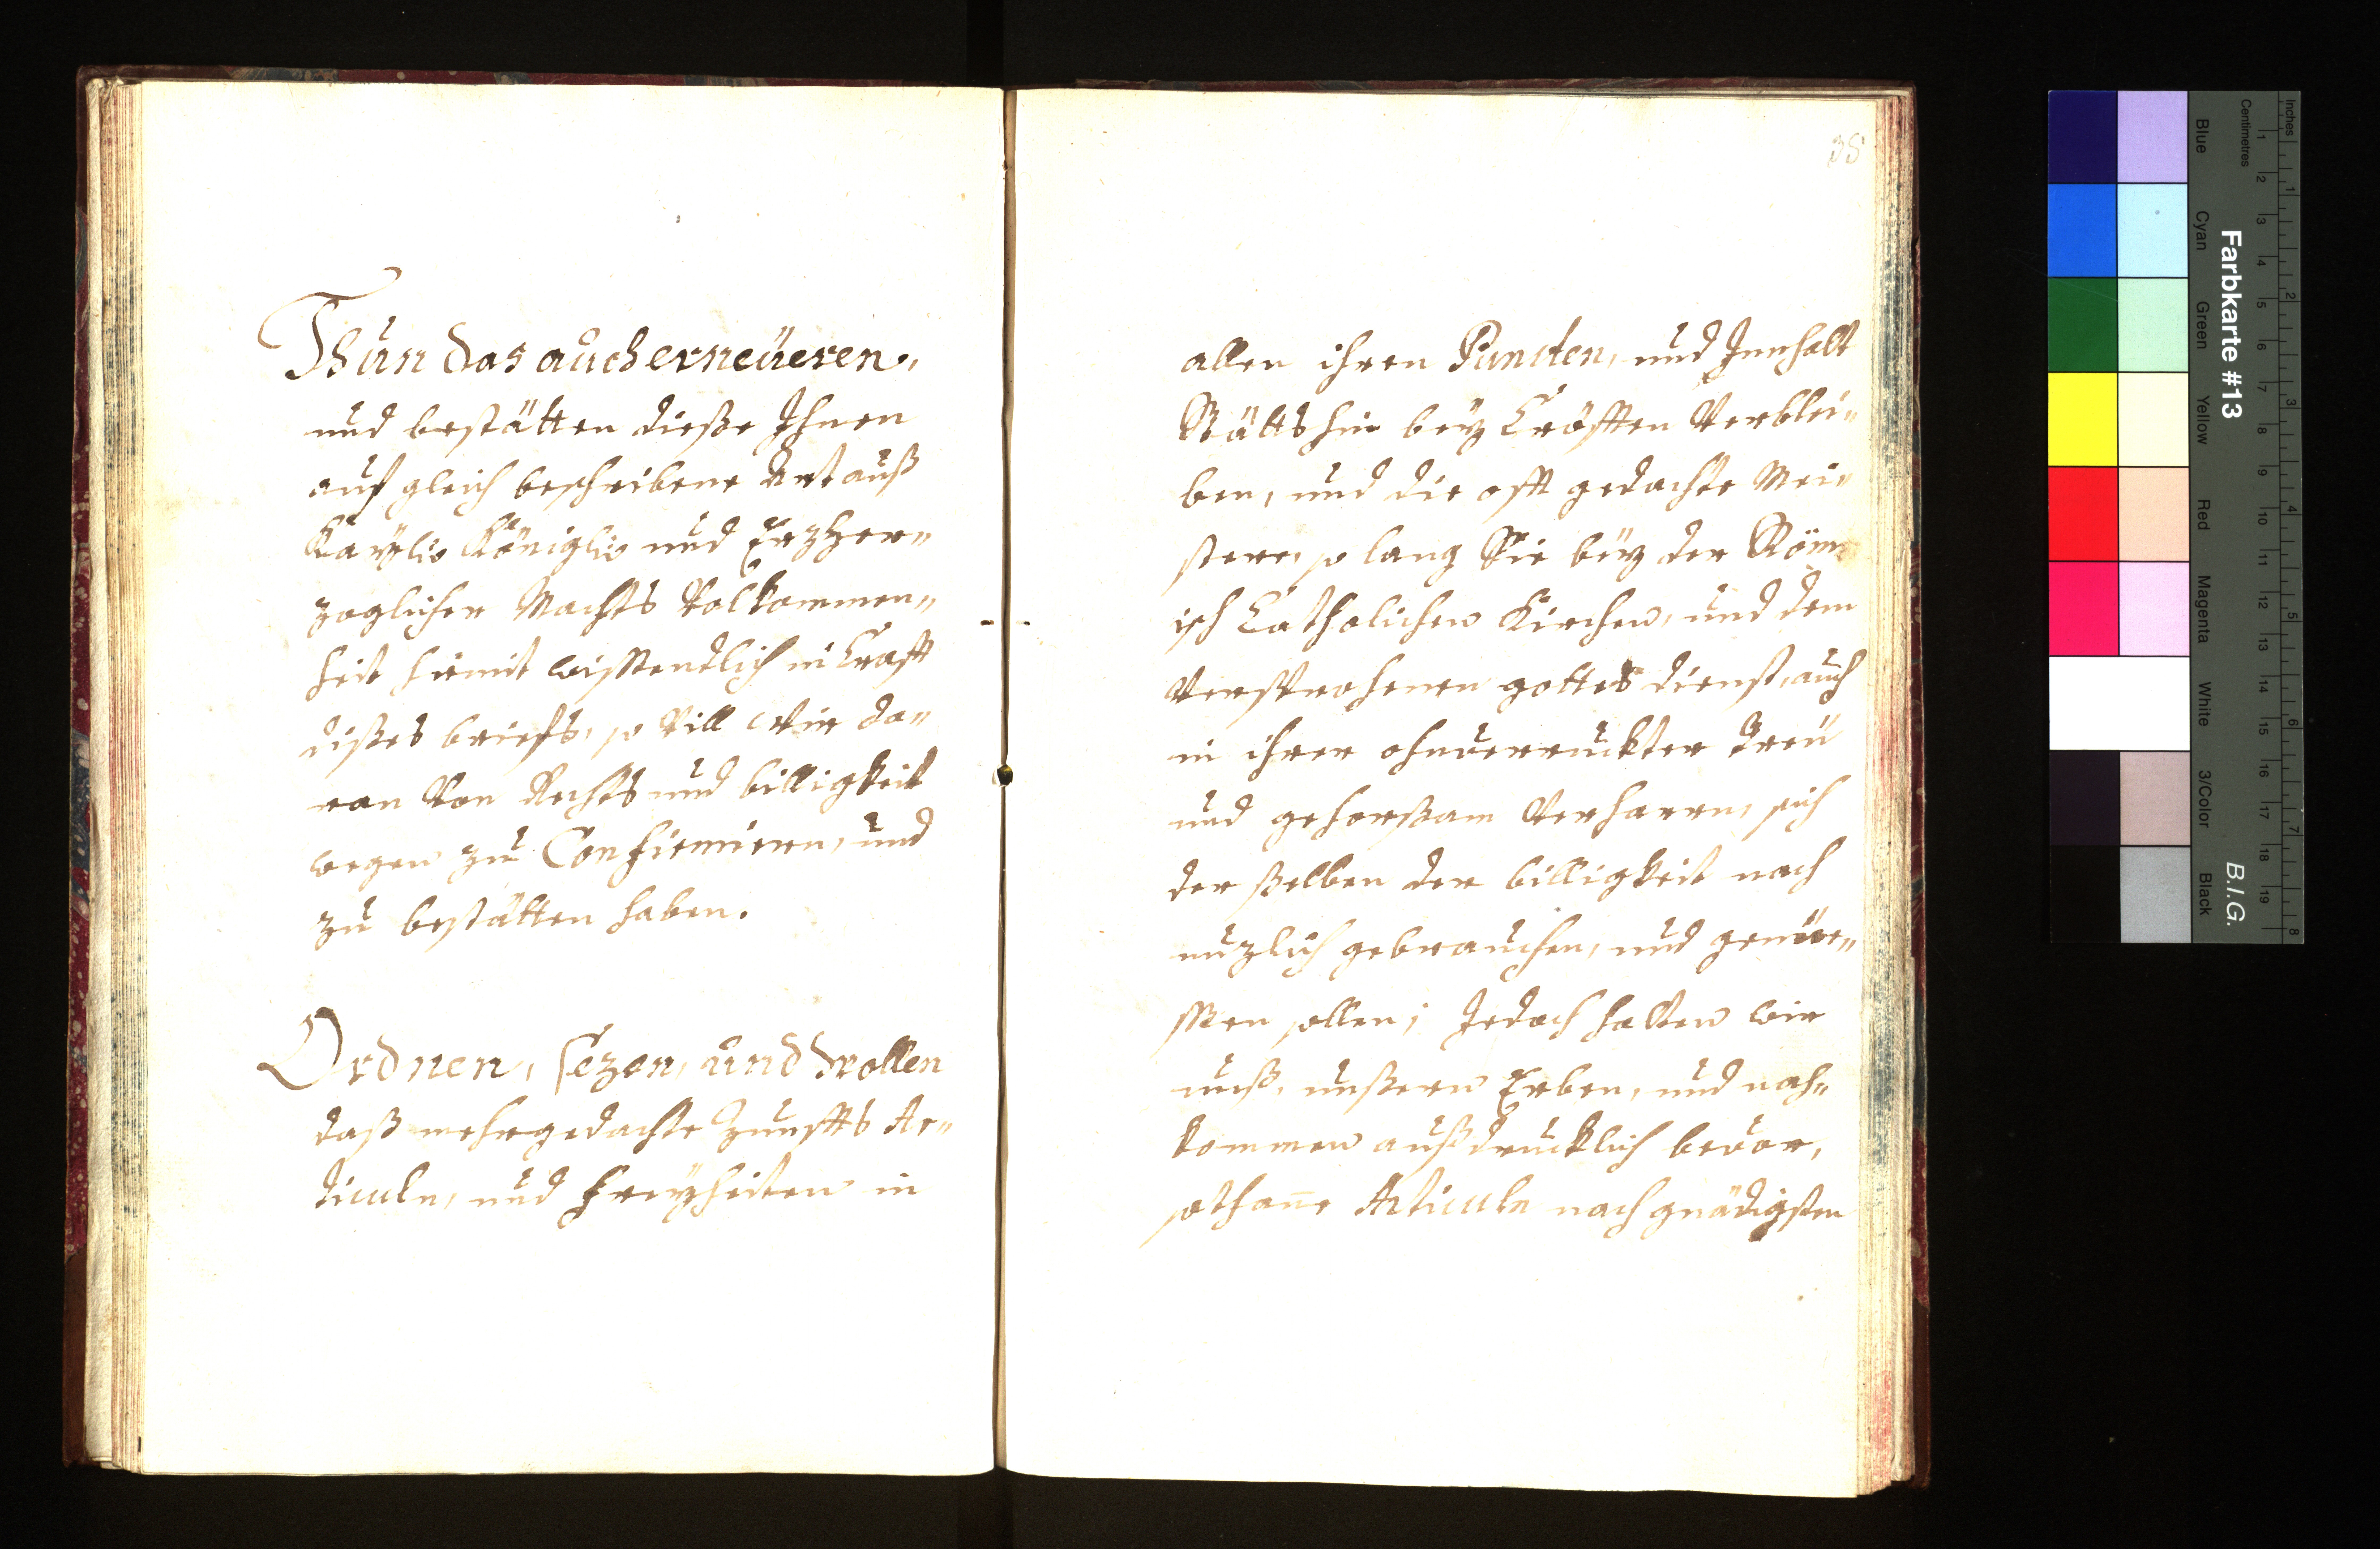 Thun das auch erneüeren,
und bestätten dieße Ihnen
auf gleich beschribene Art auß
Kaÿßlr Königlr und Erzher„
zoglicher Machts Volkommen„
heit hiemit wissendlich in Crafft
dißes briefs, so Vill Wir da„
ran Von Rechts und billigkeit
wegen zu Confirmiren, und
zu bestätten haben.
Ordnen, sezen, und wollen
daß mehrgedachte Zunffts Ar„
ticuln, und freÿheiten in
35
allen ihren Puncten, und Innhalt
Stätts hin beÿ Cräfften Verblei„
ben, und die offt gedachte Mei„
stere, so lang Sie beÿ der Röm
isch Catholichen Kirchen, und dem
Versprochenen gottes dienst, auch
in ihrer ohnverruckter Treü
und gehorßam Verharrn, sich
der ßelben der billigkeit nach
nuzlich gebrauchen, und genüe„
ssen sollen; Jedoch halten wir
unß, unßeren Erben, und nach„
kommen außdrucklich bevor,
sothane Articuln nach gnädigsten
Farbkarte #13
B.I.G.
Inches
Centimetres
Blue
Cyan
Green
Yellow
Red
Magenta
White
3/Color
Black